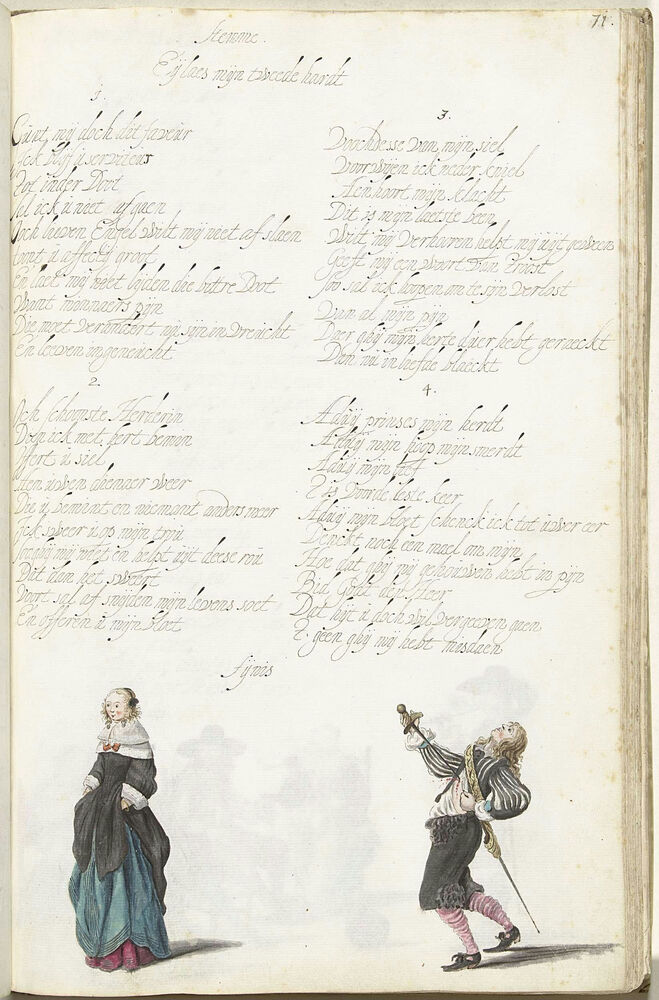 71.
Stemme.
Eylaes mijn tweede hardt
1.
Gunt mij doch dit faveur
ick blijf u serviteur
Tot inder Doot
sal ick u neet afgaen
Och lieven Engel wilt mij niet af slaen
toont u affectij groot
En laet mij neet lijden die bittre Doot
Want minnaers pijn
Die moet verandert sijn in vreucht
En leeven in geneucht
2.
Och schoonste Herderin
Doen ick met hert bemin
offert u siel
Aen uwen dienaer weer
Die u bemint en niemant anders meer
ick sweer u op mijn trou
soo ghij mij niet en helpt uijt deese rou
Dit dan het swaert
Voort sal af snijden mijn levens soet
En offeren u mijn bloet
3.
Voochdesse van mijn siel
Voor wien ick neder kniel
Aenhoort mijn klacht
Dit is mijn laetste been
Wilt mij verhooren helpt mij uijt geween
Geeft mij een woort van Troost
soo sal ick hoopen om te sijn verlost
Van al mijn pijn
Daer ghij mijn herte daer hebt geraeckt
Den nu in liefde blaeckt
4.
Adiuij prinses mijn herdt
Adiuij mijn hoop mijn smerdt
Adiuij mijn
T is voorde leste keer
Adiuij mijn bloet schenck ick tot uwer eer
Denckt noch een mael om mijn
Hoe dat ghij mij gehouwen hebt in pijn
Bid Godt den Heer
Dat hij u doch wil vergeeven gaen
T geen ghij mij hebt misdaen
Fijnis